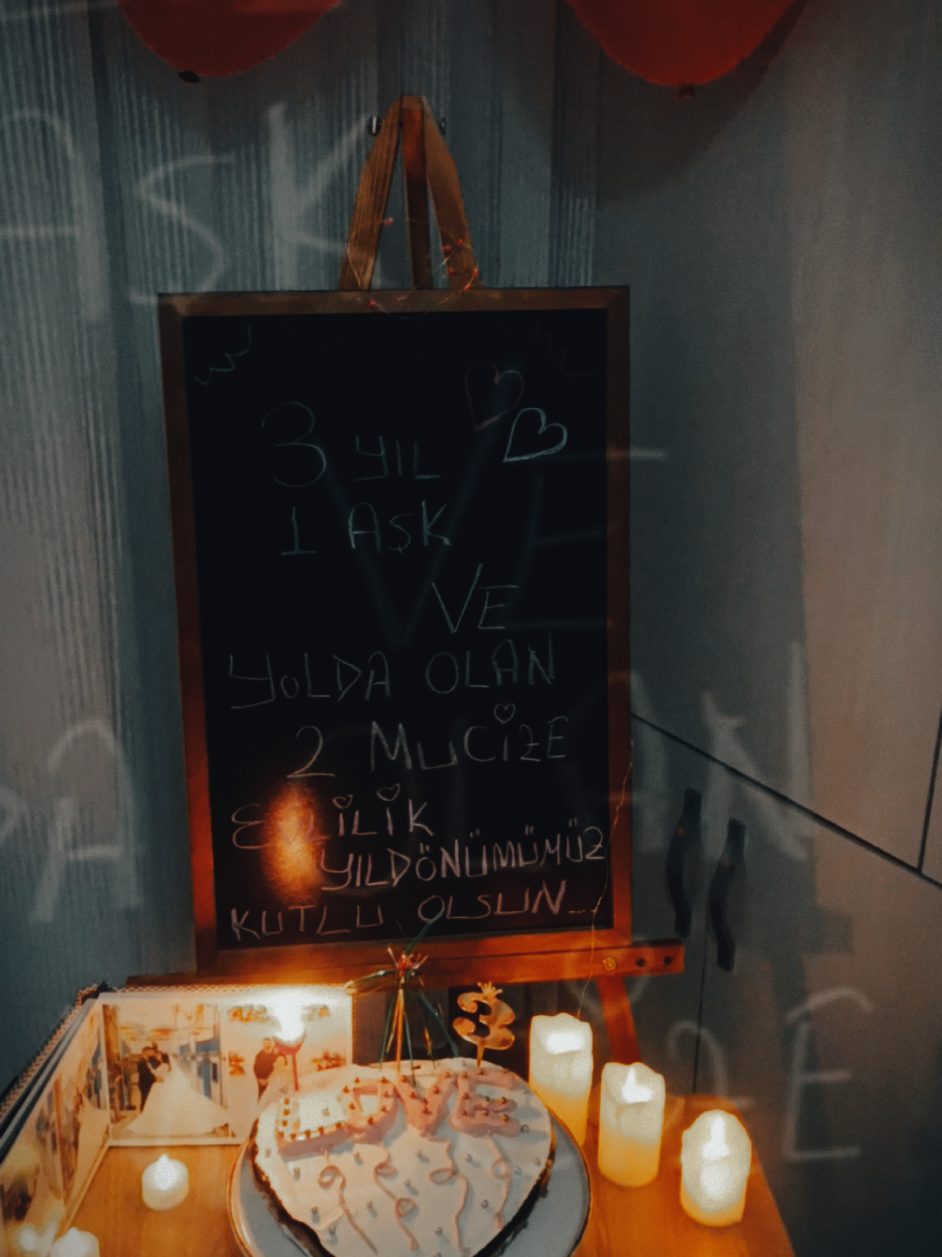 3 YIL
1 AŞK
VE
YOLDA OLAN
2 MUCİZE
EVLİLİK
YILDÖNÜMÜMÜZ
KUTLU OLSUN...
3
LOVE